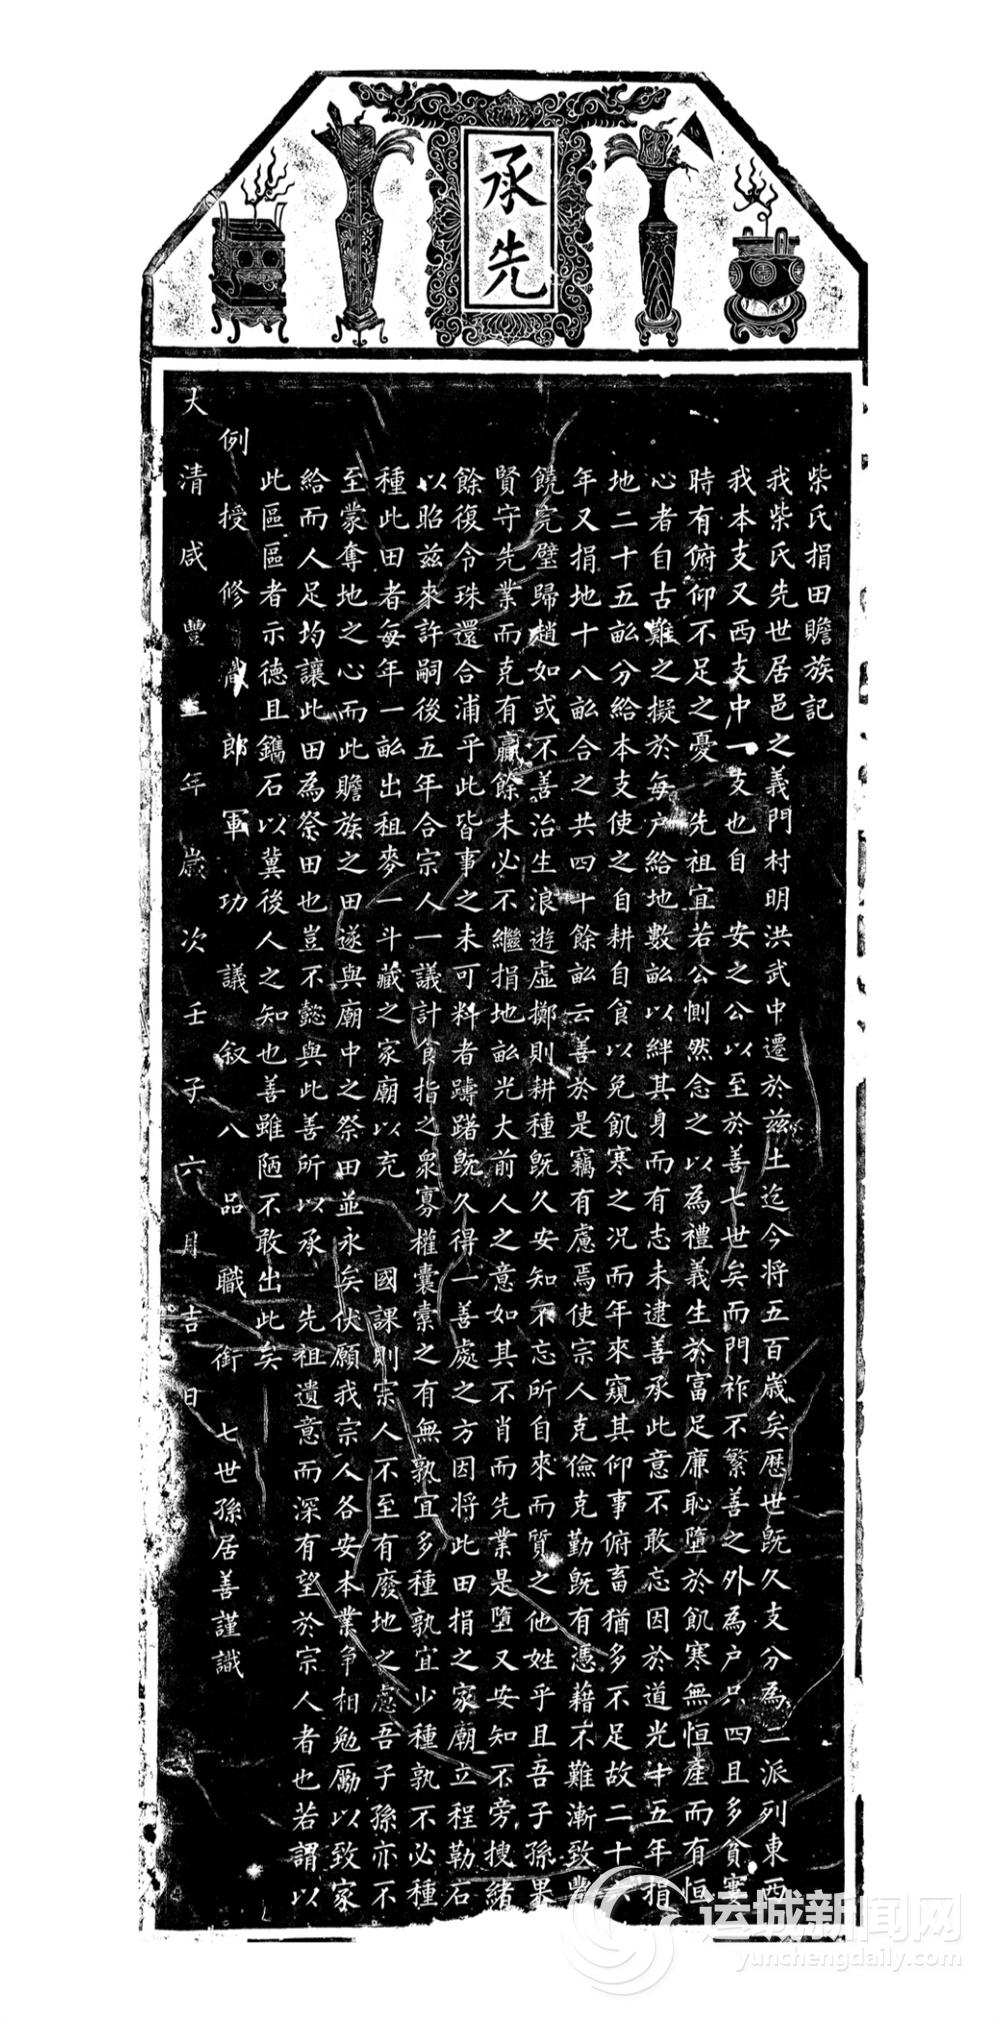 承先
柴氏捐田贍族記
我柴氏先世居邑之義門村明洪武中遷於茲土迄今将五百歲矣歷世旣久支分為二派列東西
我本支又西支中一支也自 安之公以至於善七世矣而門祚不繁善之外為户只四且多貧窶
時有俯仰不足之憂 先祖宜若公惻然念之以為禮義生於富足廉恥墮於飢寒無恒產而有恒
心者自古難之擬於每户給地數畝以絆其身而有志未逮善承此意不敢忘因於道光十五年捐
地二十五畝分給本支使之自耕自食以免飢寒之况而年來窺其仰事俯畜猶多不足故二十
年又捐地十八畝合之共四十餘畝云善於是竊有慮焉使宗人克儉克勤旣有憑藉不難漸致豐
饒完璧歸趙如或不善治生浪遊虛擲則耕種旣久安知不忘所自來而質之他姓乎且吾子孫果
賢守先業而克有贏餘未必不繼捐地畝光大前人之意如其不肖而先業是墮又安知不旁搜緒
餘復令珠還合浦乎此皆事之未可料者躊躇旣久得一善處之方因将此田捐之家廟立程勒石
以昭茲來許嗣後五年合宗人一議計食指之衆寡權囊橐之有無孰宜多種孰宜少種孰不必種
種此田者每年一畝出租麥一斗藏之家廟以充 國課則宗人不至有廢地之慮吾子孫亦不
至蒙奪地之心而此贍族之田遂與廟中之祭田並永矣伏願我宗人各安本業爭相勉勵以致家
給而人足均讓此田為祭田也豈不懿與此善所以承 先祖遺意而深有望於宗人者也若謂以
此區區者示德且鐫石以冀後人之知也善雖陋不敢出此矣
例授修職郎軍功議叙八品職銜 七世孫居善謹識
大清咸豐二年歲次壬子六月吉日
运城新闻网
yunchengdaily.com